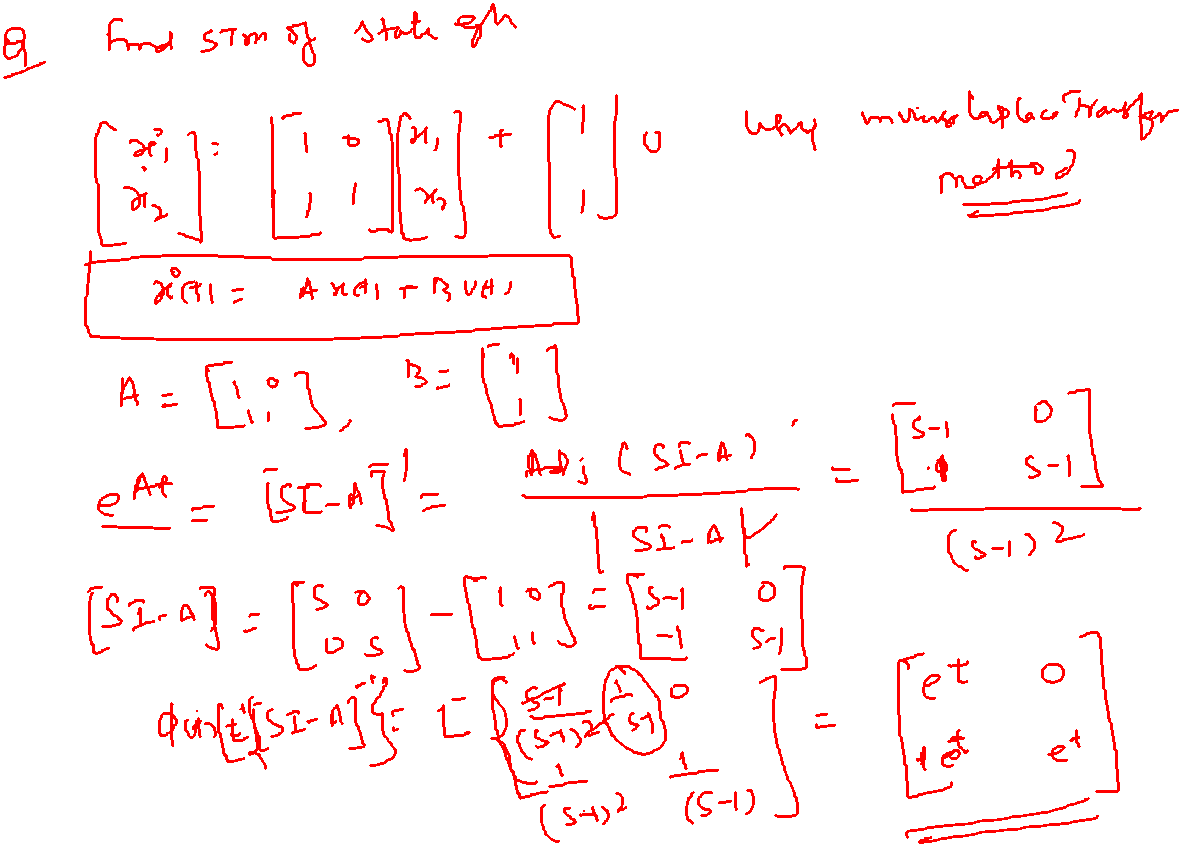 Q Find STM of state eqn
[ẋ1 ẋ2] = [1 0 1 1] [x1 x2] + [1 1] U using inverse Laplace Transfer
method
ẋ(t) = A x(t) + B U(t)
A = [1 0 1 1], B = [1 1]
e^At = [SI-A]^-1 = Adj (SI-A) / |SI-A| = [S-1 0 1 S-1] / (S-1)^2
[SI-A] = [S 0 0 S] - [1 0 1 1] = [S-1 0 -1 S-1]
[SI-A]^-1} = [S-1/(S-1)^2 1/S-1 0 1/(S-1)^2 1/(S-1)] = [e^t 0 te^t e^t]